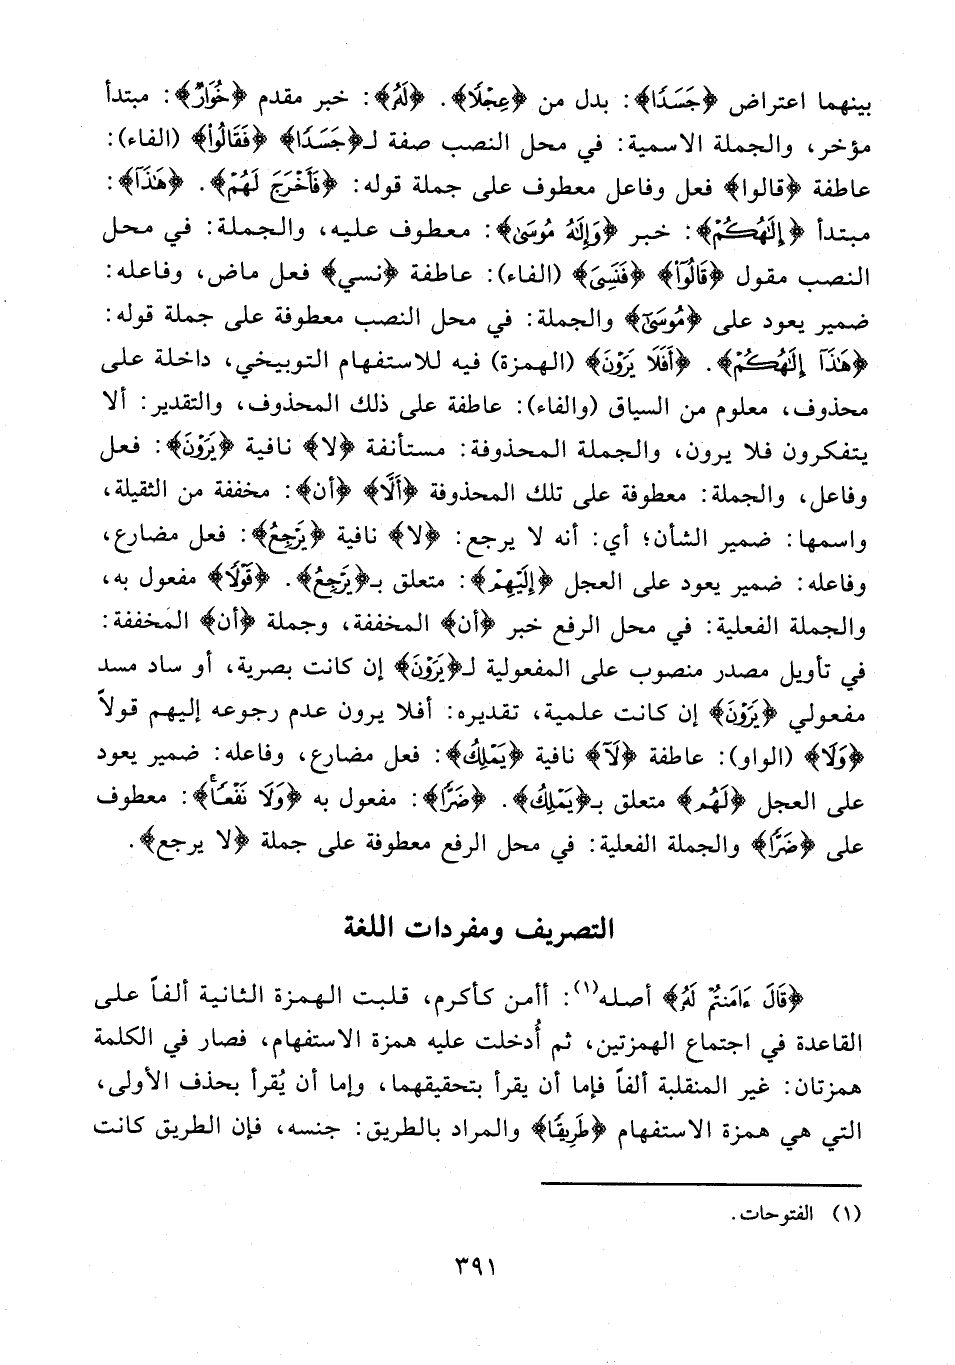 بينهما اعتراض ﴿جَسَدًا﴾: بدل من ﴿عِجْلًا﴾. ﴿لَّهُ﴾: خبر مقدم ﴿خُوَارٌ﴾: مبتدأ
مؤخر، والجملة الاسمية: في محل النصب صفة لـ﴿جَسَدًا﴾ ﴿فَقَالُوا۟﴾ (الفاء):
عاطفة ﴿قالوا﴾ فعل وفاعل معطوف على جملة قوله: ﴿فَأَخْرَجَ لَهُمْ﴾. ﴿هَٰذَآ﴾:
مبتدأ ﴿إِلَٰهُكُمْ﴾: خبر ﴿وَإِلَٰهُ مُوسَىٰ﴾: معطوف عليه، والجملة: في محل
النصب مقول ﴿قَالُوٓا۟﴾ ﴿فَنَسِىَ﴾ (الفاء): عاطفة ﴿نسي﴾ فعل ماض، وفاعله:
ضمير يعود على ﴿مُوسَىٰٓ﴾ والجملة: في محل النصب معطوفة على جملة قوله:
﴿هَٰذَآ إِلَٰهُكُمْ﴾. ﴿أَفَلَا يَرَوْنَ﴾ (الهمزة) فيه للاستفهام التوبيخي، داخلة على
محذوف، معلوم من السياق (والفاء): عاطفة على ذلك المحذوف، والتقدير: ألا
يتفكرون فلا يرون، والجملة المحذوفة: مستأنفة ﴿لا﴾ نافية ﴿يَرَوْنَ﴾: فعل
وفاعل، والجملة: معطوفة على تلك المحذوفة ﴿أَلَّا﴾ ﴿أن﴾: مخففة من الثقيلة،
واسمها: ضمير الشأن؛ أي: أنه لا يرجع: ﴿لا﴾ نافية ﴿يَرْجِعُ﴾: فعل مضارع،
وفاعله: ضمير يعود على العجل ﴿إِلَيْهِمْ﴾: متعلق بـ﴿يَرْجِعُ﴾. ﴿قَوْلًا﴾ مفعول به،
والجملة الفعلية: في محل الرفع خبر ﴿أن﴾ المخففة، وجملة ﴿أن﴾ المخففة:
في تأويل مصدر منصوب على المفعولية لـ﴿يَرَوْنَ﴾ إن كانت بصرية، أو ساد مسد
مفعولي ﴿يَرَوْنَ﴾ إن كانت علمية، تقديره: أفلا يرون عدم رجوعه إليهم قولاً
﴿وَلَا﴾ (الواو): عاطفة ﴿لَآ﴾ نافية ﴿يَمْلِكُ﴾: فعل مضارع، وفاعله: ضمير يعود
على العجل ﴿لَهُمْ﴾ متعلق بـ﴿يَمْلِكُ﴾. ﴿ضَرًّا﴾: مفعول به ﴿وَلَا نَفْعًا﴾: معطوف
على ﴿ضَرًّا﴾ والجملة الفعلية: في محل الرفع معطوفة على جملة ﴿لا يرجع﴾.
التصريف ومفردات اللغة
﴿قَالَ ءَامَنتُمْ لَهُ﴾ أصله(١): أأمن كأكرم، قلبت الهمزة الثانية ألفاً على
القاعدة في اجتماع الهمزتين، ثم أُدخلت عليه همزة الاستفهام، فصار في الكلمة
همزتان: غير المنقلبة ألفاً فإما أن يقرأ بتحقيقهما، وإما أن يُقرأ بحذف الأولى،
التي هي همزة الاستفهام ﴿طَرِيقًا﴾ والمراد بالطريق: جنسه، فإن الطريق كانت
(١) الفتوحات.
٣٩١